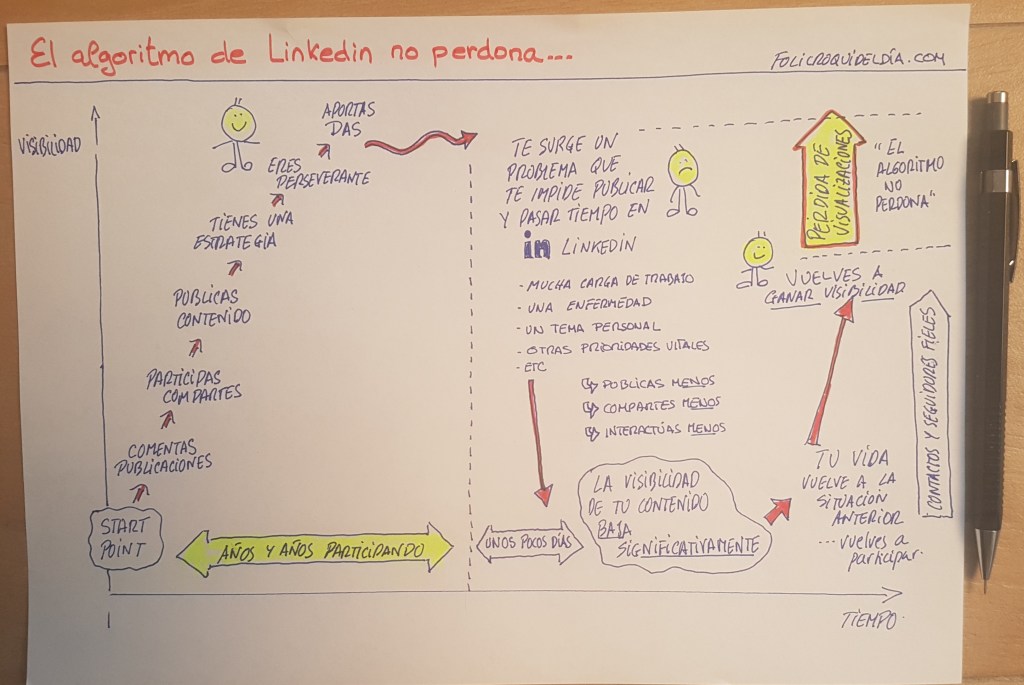 El algoritmo de Linkedin no perdona...
FOLICROQUIDELDÍA.COM
VISIBILIDAD
APORTAS
DAS
ERES
PERSEVERANTE
TIENES UNA
ESTRATEGIA
PUBLICAS
CONTENIDO
PARTICIPAS
COMPARTES
COMENTAS
PUBLICACIONES
START
POINT
AÑOS Y AÑOS PARTICIPANDO
TE SURGE UN
PROBLEMA QUE
TE IMPIDE PUBLICAR
Y PASAR TIEMPO EN
in LINKEDIN
- MUCHA CARGA DE TRABAJO
- UNA ENFERMEDAD
- UN TEMA PERSONAL
- OTRAS PRIORIDADES VITALES
- ETC
PUBLICAS MENOS
COMPARTES MENOS
INTERACTÚAS MENOS
UNOS POCOS DÍAS
LA VISIBILIDAD
DE TU CONTENIDO
BAJA
SIGNIFICATIVAMENTE
TU VIDA
VUELVE A LA
SITUACIÓN
ANTERIOR
... vuelves a
participar.
VUELVES A
GANAR VISIBILIDAD
PERDIDA DE
VISUALIZACIONES
"EL
ALGORITMO
NO
PERDONA"
CONTACTOS Y SEGUIDORES FIELES
TIEMPO.